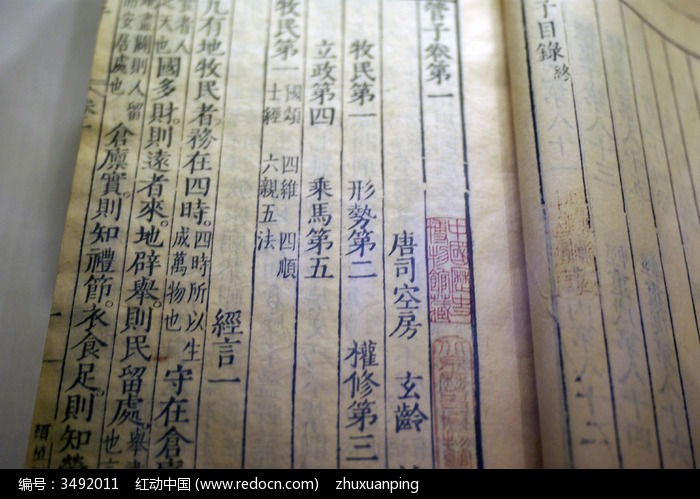 子目錄終
管子卷第一
唐司空房 玄齡
中國歷史
博物館藏
牧民第一 形勢第二 權修第三
立政第四 乘馬第五
牧民第一 國頌 四維 四順
士經 六親五法 經言一
凡有地牧民者。務在四時。四時所以生成萬物也 守在倉
食者人
天也 國多財。則遠者來。地辟舉。則民留處。舉
盡闢則人留
而安居處也 倉廩實。則知禮節。衣食足。則知
编号：3492011 红动中国 (www.redocn.com) zhuxuanping